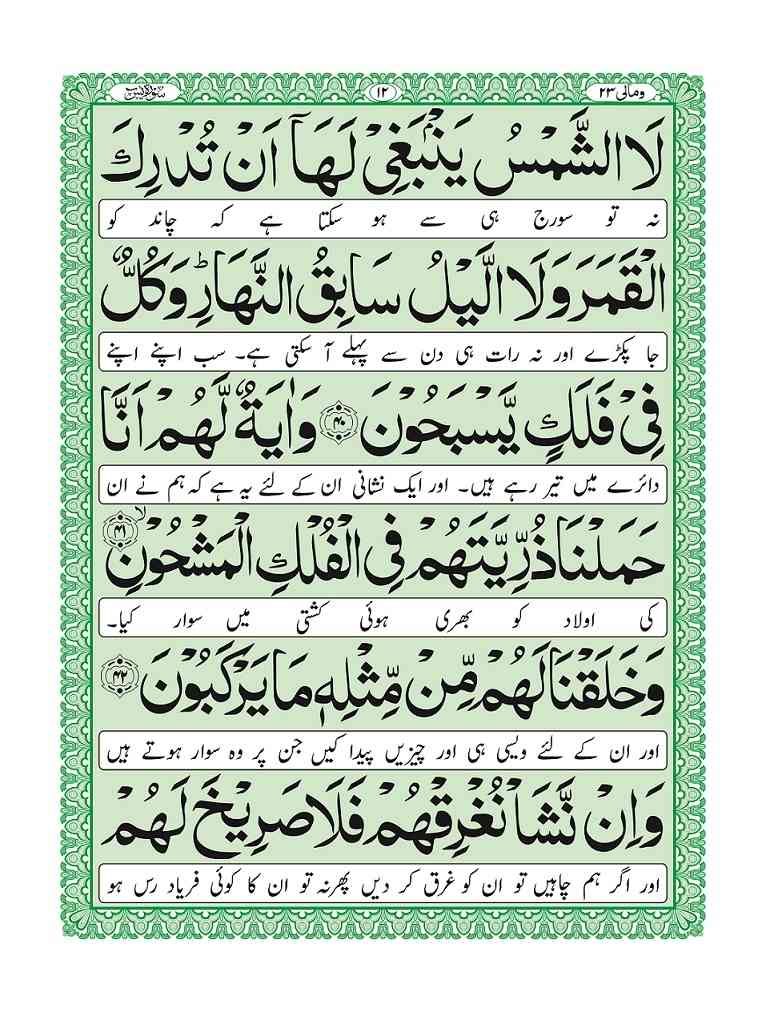 ومالی ۲۳ ۱۲ سورۃ یٰسٓ
لَا الشَّمْسُ يَنْۢبَغِیْ لَهَاۤ اَنْ تُدْرِكَ
نہ تو سورج ہی سے ہو سکتا ہے کہ چاند کو
الْقَمَرَ وَلَا الَّيْلُ سَابِقُ النَّهَارِ ؕ وَكُلٌّ
جا پکڑے اور نہ رات ہی دن سے پہلے آ سکتی ہے۔ سب اپنے اپنے
فِیْ فَلَكٍ يَّسْبَحُوْنَ ۴۰ وَاٰيَةٌ لَّهُمْ اَنَّا
دائرے میں تیر رہے ہیں۔ اور ایک نشانی ان کے لئے یہ ہے کہ ہم نے ان
حَمَلْنَا ذُرِّيَّتَهُمْ فِی الْفُلْكِ الْمَشْحُوْنِ ۙ ۴۱
کی اولاد کو بھری ہوئی کشتی میں سوار کیا۔
وَخَلَقْنَا لَهُمْ مِّنْ مِّثْلِهٖ مَا يَرْكَبُوْنَ ۴۲
اور ان کے لئے ویسی ہی اور چیزیں پیدا کیں جن پر وہ سوار ہوتے ہیں
وَاِنْ نَّشَاْ نُغْرِقْهُمْ فَلَا صَرِيْخَ لَهُمْ
اور اگر ہم چاہیں تو ان کو غرق کر دیں پھر نہ تو ان کا کوئی فریاد رس ہو